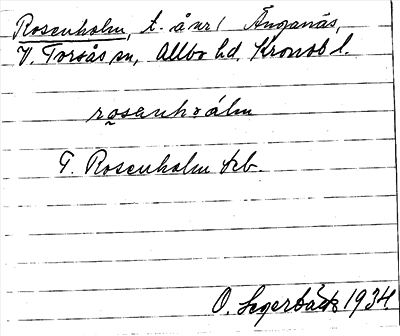 Rosenholm, t. å nr 1 Änganäs,
V. Torsås sn, Allbo hd. Kronob l.
rosenhòálm
T. Rosenholm
O. Segerbäck 1934